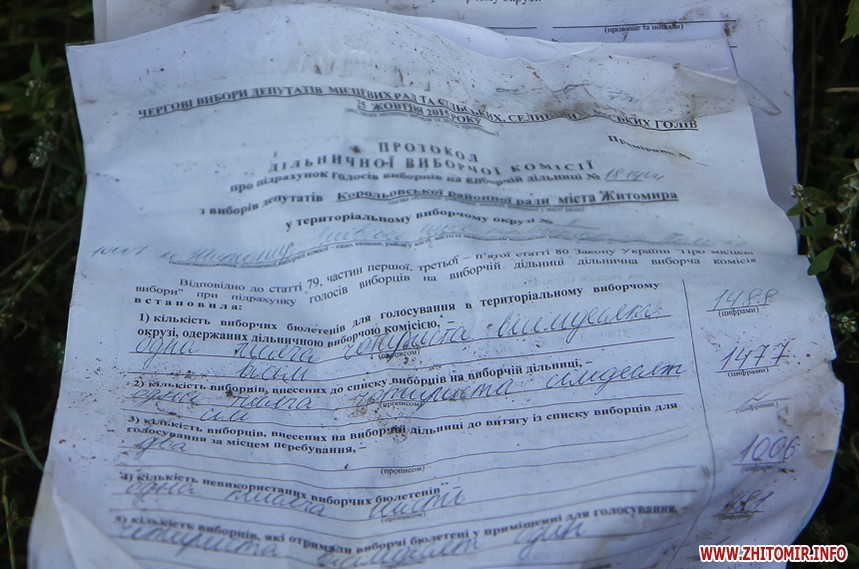 (прізвище та ініціали)
ЧЕРГОВІ ВИБОРИ ДЕПУТАТІВ МІСЦЕВИХ РАД ТА СІЛЬСЬКИХ, СЕЛИЩНИХ, МІСЬКИХ ГОЛІВ
25 ЖОВТНЯ 2015 РОКУ
Примірник №
ПРОТОКОЛ
ДІЛЬНИЧНОЇ ВИБОРЧОЇ КОМІСІЇ
про підрахунок голосів виборців на виборчій дільниці №
з виборів депутатів Корольовської районної ради міста Житомира
у територіальному виборчому окрузі №
Відповідно до статті 79, частин першої, третьої – п'ятої статті 80 Закону України "Про місцеві
вибори" при підрахунку голосів виборців на виборчій дільниці дільнична виборча комісія
встановила:
1) кількість виборчих бюлетенів для голосування в територіальному виборчому
округзі, одержаних дільничною виборчою комісією, – 1488
одна тисяча чотириста вісімдесят (цифрами)
вісім (прописом)
2) кількість виборців, внесених до списку виборців на виборчій дільниці, – 1477
одна тисяча чотириста сімдесят (цифрами)
сім (прописом)
3) кількість виборців, внесених на виборчій дільниці до витягу із списку виборців для
голосування за місцем перебування, – (цифрами)
два
(прописом)
4) кількість невикористаних виборчих бюлетенів – 1006
одна тисяча шість (цифрами)
(прописом)
5) кількість виборців, які отримали виборчі бюлетені у приміщенні для голосування, – 481
чотириста вісімдесят один (цифрами)
WWW.ZHITOMIR.INFO